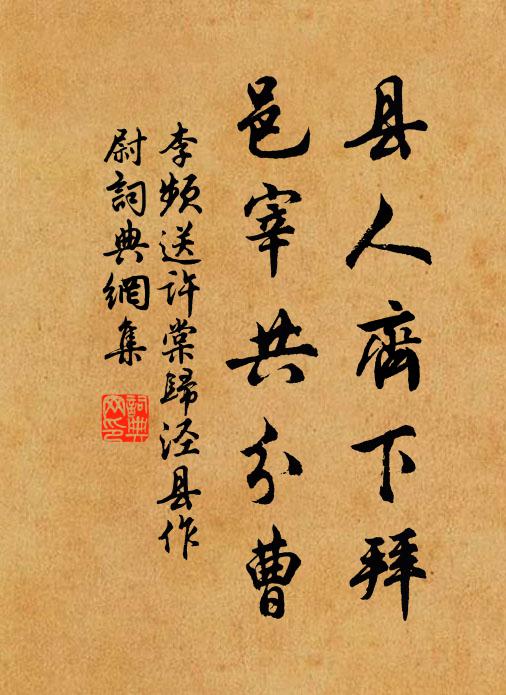 县人齊下拜
邑宰共分曹
李频送许棠歸泾县作
尉詞典網集
詞典
网印